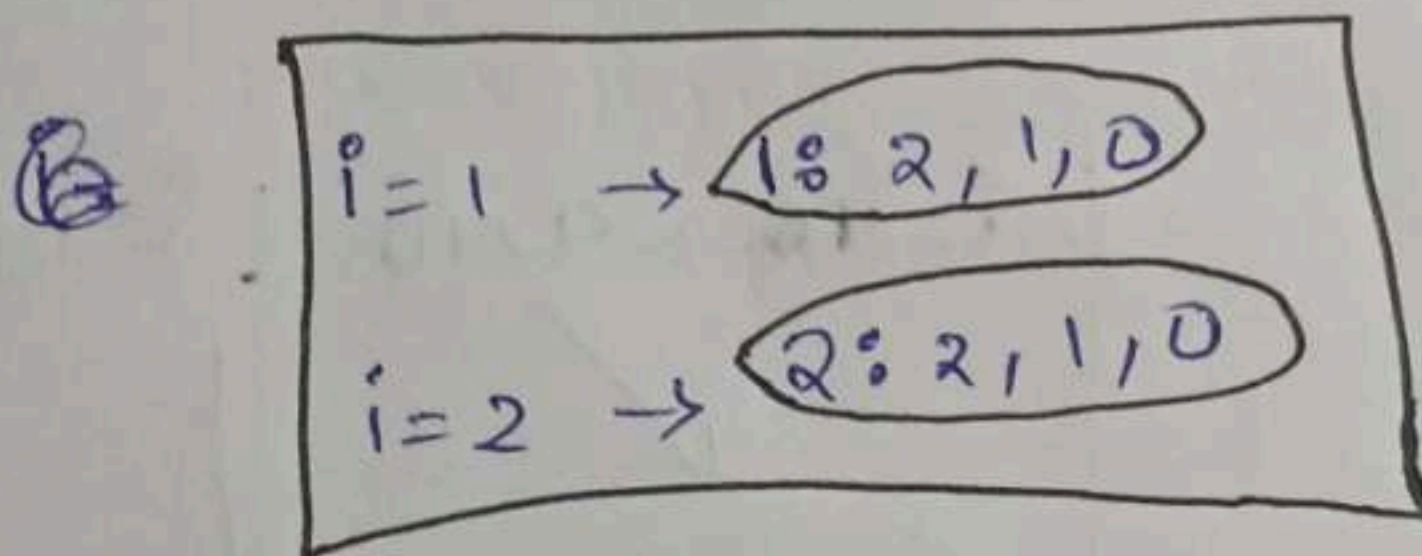 i = 1 → 1: 2, 1, 0
i = 2 → 2: 2, 1, 0